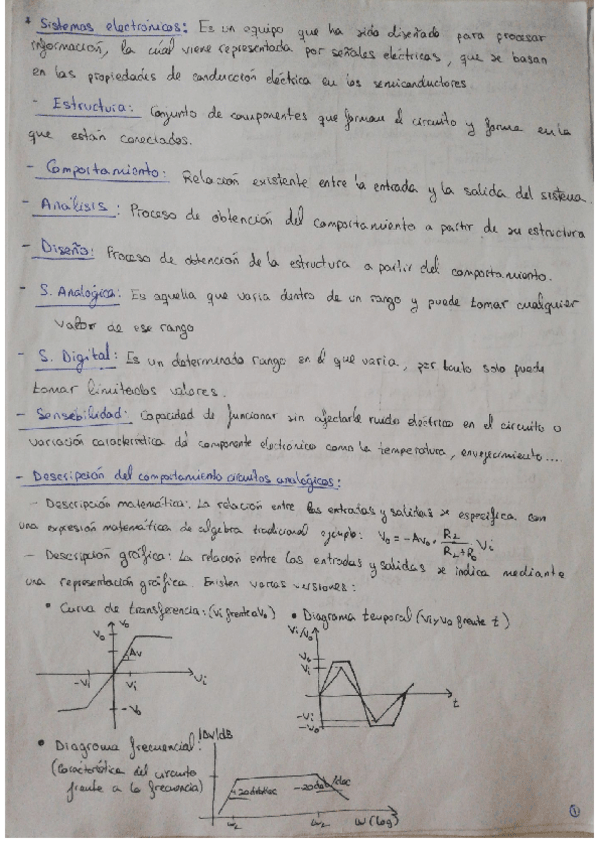 * Sistemas electrónicos: Es un equipo que ha sido diseñado para procesar
información, la cuál viene representada por señales eléctricas, que se basan
en las propiedades de conducción eléctrica en los semiconductores.
- Estructura: Conjunto de componentes que forman el circuito y forma en la
que están conectados.
- Comportamiento: Relación existente entre la entrada y la salida del sistema.
- Análisis: Proceso de obtención del comportamiento a partir de su estructura
- Diseño: Proceso de obtención de la estructura a partir del comportamiento.
- S. Analógica: Es aquella que varia dentro de un rango y puede tomar cualquier
valor de ese rango
- S. Digital: Es un determinado rango en el que varia, por tanto solo puede
tomar limitados valores.
- Sensebilidad: Capacidad de funcionar sin afectarle ruido eléctrico en el circuito o
variación característica del componente electrónico como la temperatura, envejecimiento....
- Descripción del comportamiento circuitos analógicos:
- Descripción matemática: La relación entre las entradas y salidas se especifica con
una expresión matemática de algebra tradicional ejemplo: Vo = -Avo · RL / RL+Ro · Vi
- Descripción gráfica: La relación entre las entradas y salidas se indica mediante
una representación gráfica. Existen varias versiones:
• Curva de transferencia: (Vi frente a Vo) • Diagrama temporal (Vi y Vo frente t)
Vo
Vo
Av
-Vi Vi Vi
-Vo
Vi/Vo
Vo
Vi
t
-Vi
-Vo
• Diagrama frecuencial:
(Característica del circuito
frente a la frecuencia)
|Av|dB
+20db/dec -20db/dec
W2 W2 W (log)
1